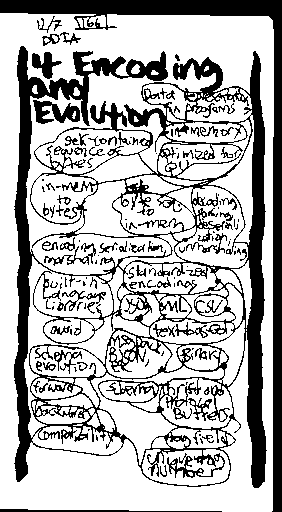 12/7 166
DDIA
4 Encoding
and
Evolution
Data
in programs
in-memory
optimized for
CPU
self-contained
sequence of
bytes
in-mem
to
bytes
byte seq
to
in-mem
decoding
parsing,
deserial
ization,
unmarshalling
encoding, serialization,
marshalling
standardized
encodings
built-in
language
libraries
JSON
XML
CSV
text-based
avoid
BSON
Binary
schema
evolution
schema
thrift and
protocol
Buffers
forward
backwards
compatibility
field
unique tag
number